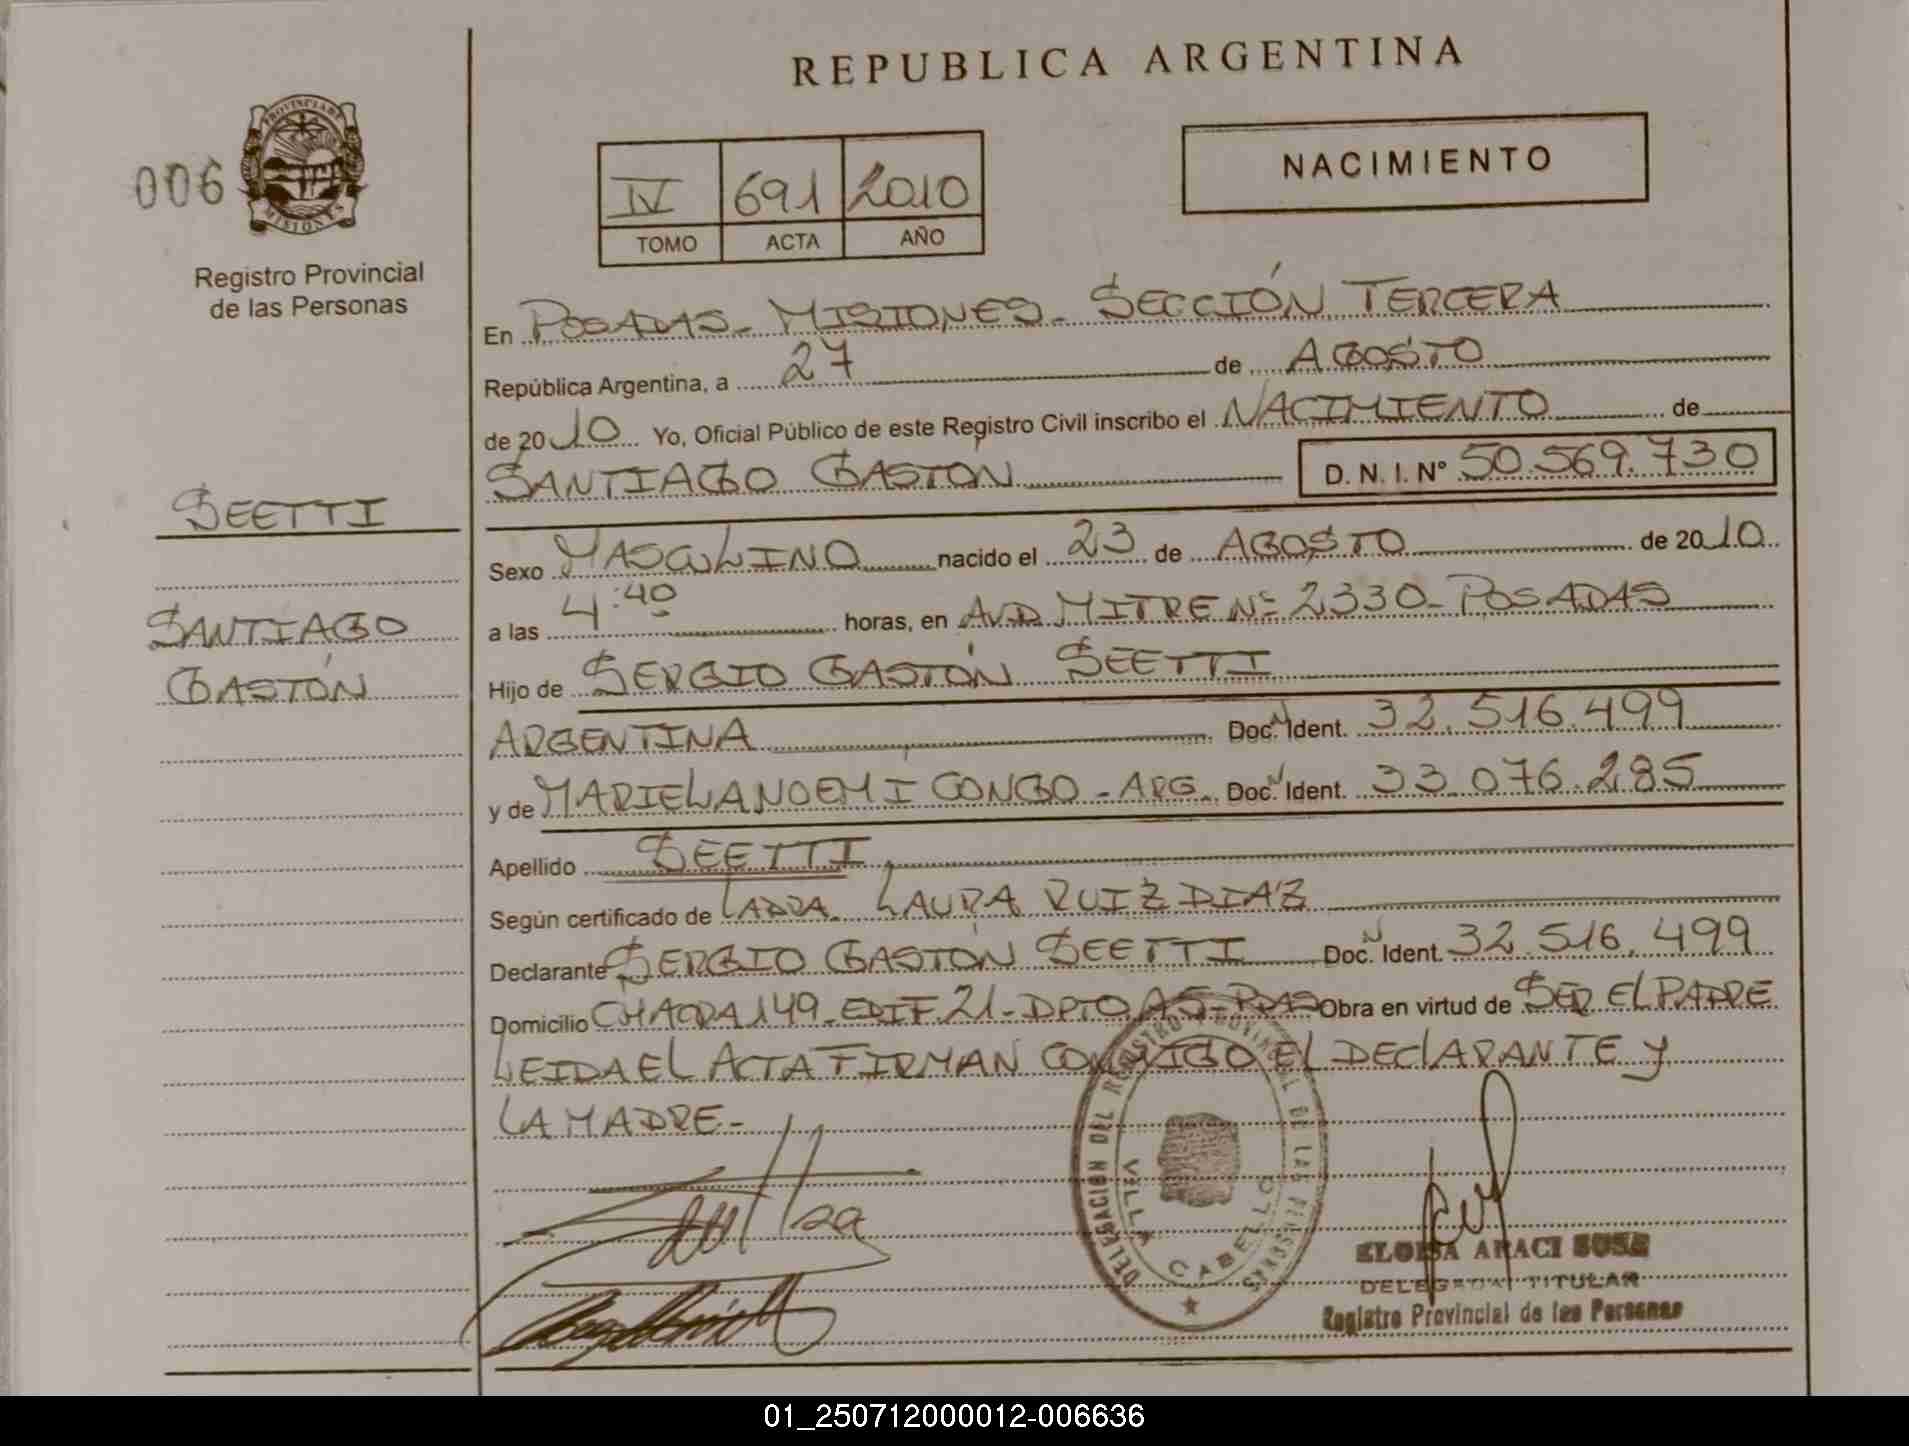 REPUBLICA ARGENTINA
006
PROVINCIA DE MISIONES
Registro Provincial
de las Personas
IV 691 2010
TOMO ACTA AÑO
NACIMIENTO
SEETTI
SANTIAGO
GASTÓN
En POSADAS - MISIONES - SECCIÓN TERCERA
República Argentina, a 27 de AGOSTO
de 2010 Yo, Oficial Público de este Registro Civil inscribo el NACIMIENTO de
SANTIAGO GASTÓN D. N. I. Nº 50.569.730
Sexo MASCULINO nacido el 23 de AGOSTO de 2010
a las 4:40 horas, en AVD. MITRE Nº 2330 - POSADAS
Hijo de SERGIO GASTÓN SEETTI
ARGENTINA Doc. N Ident. 32.516.499
y de MARIELA NOEMI CONGO - ARG. Doc. N Ident. 33.076.285
Apellido SEETTI
Según certificado de LA DRA. LAURA RUIZ DIAZ
Declarante SERGIO GASTÓN SEETTI Doc. N Ident. 32.516.499
Domicilio CHACRA 149 - EDIF. 21 - DPTO A5 - PDAS Obra en virtud de SER EL PADRE
LEIDA EL ACTA FIRMAN CONMIGO EL DECLARANTE Y
LA MADRE -
DELEGACION DEL REGISTRO PROVINCIAL DE LAS PERSONAS
VILLA CABELLO
ELOISA ARACI
DELEGADA TITULAR
Registro Provincial de las Personas
01_250712000012-006636